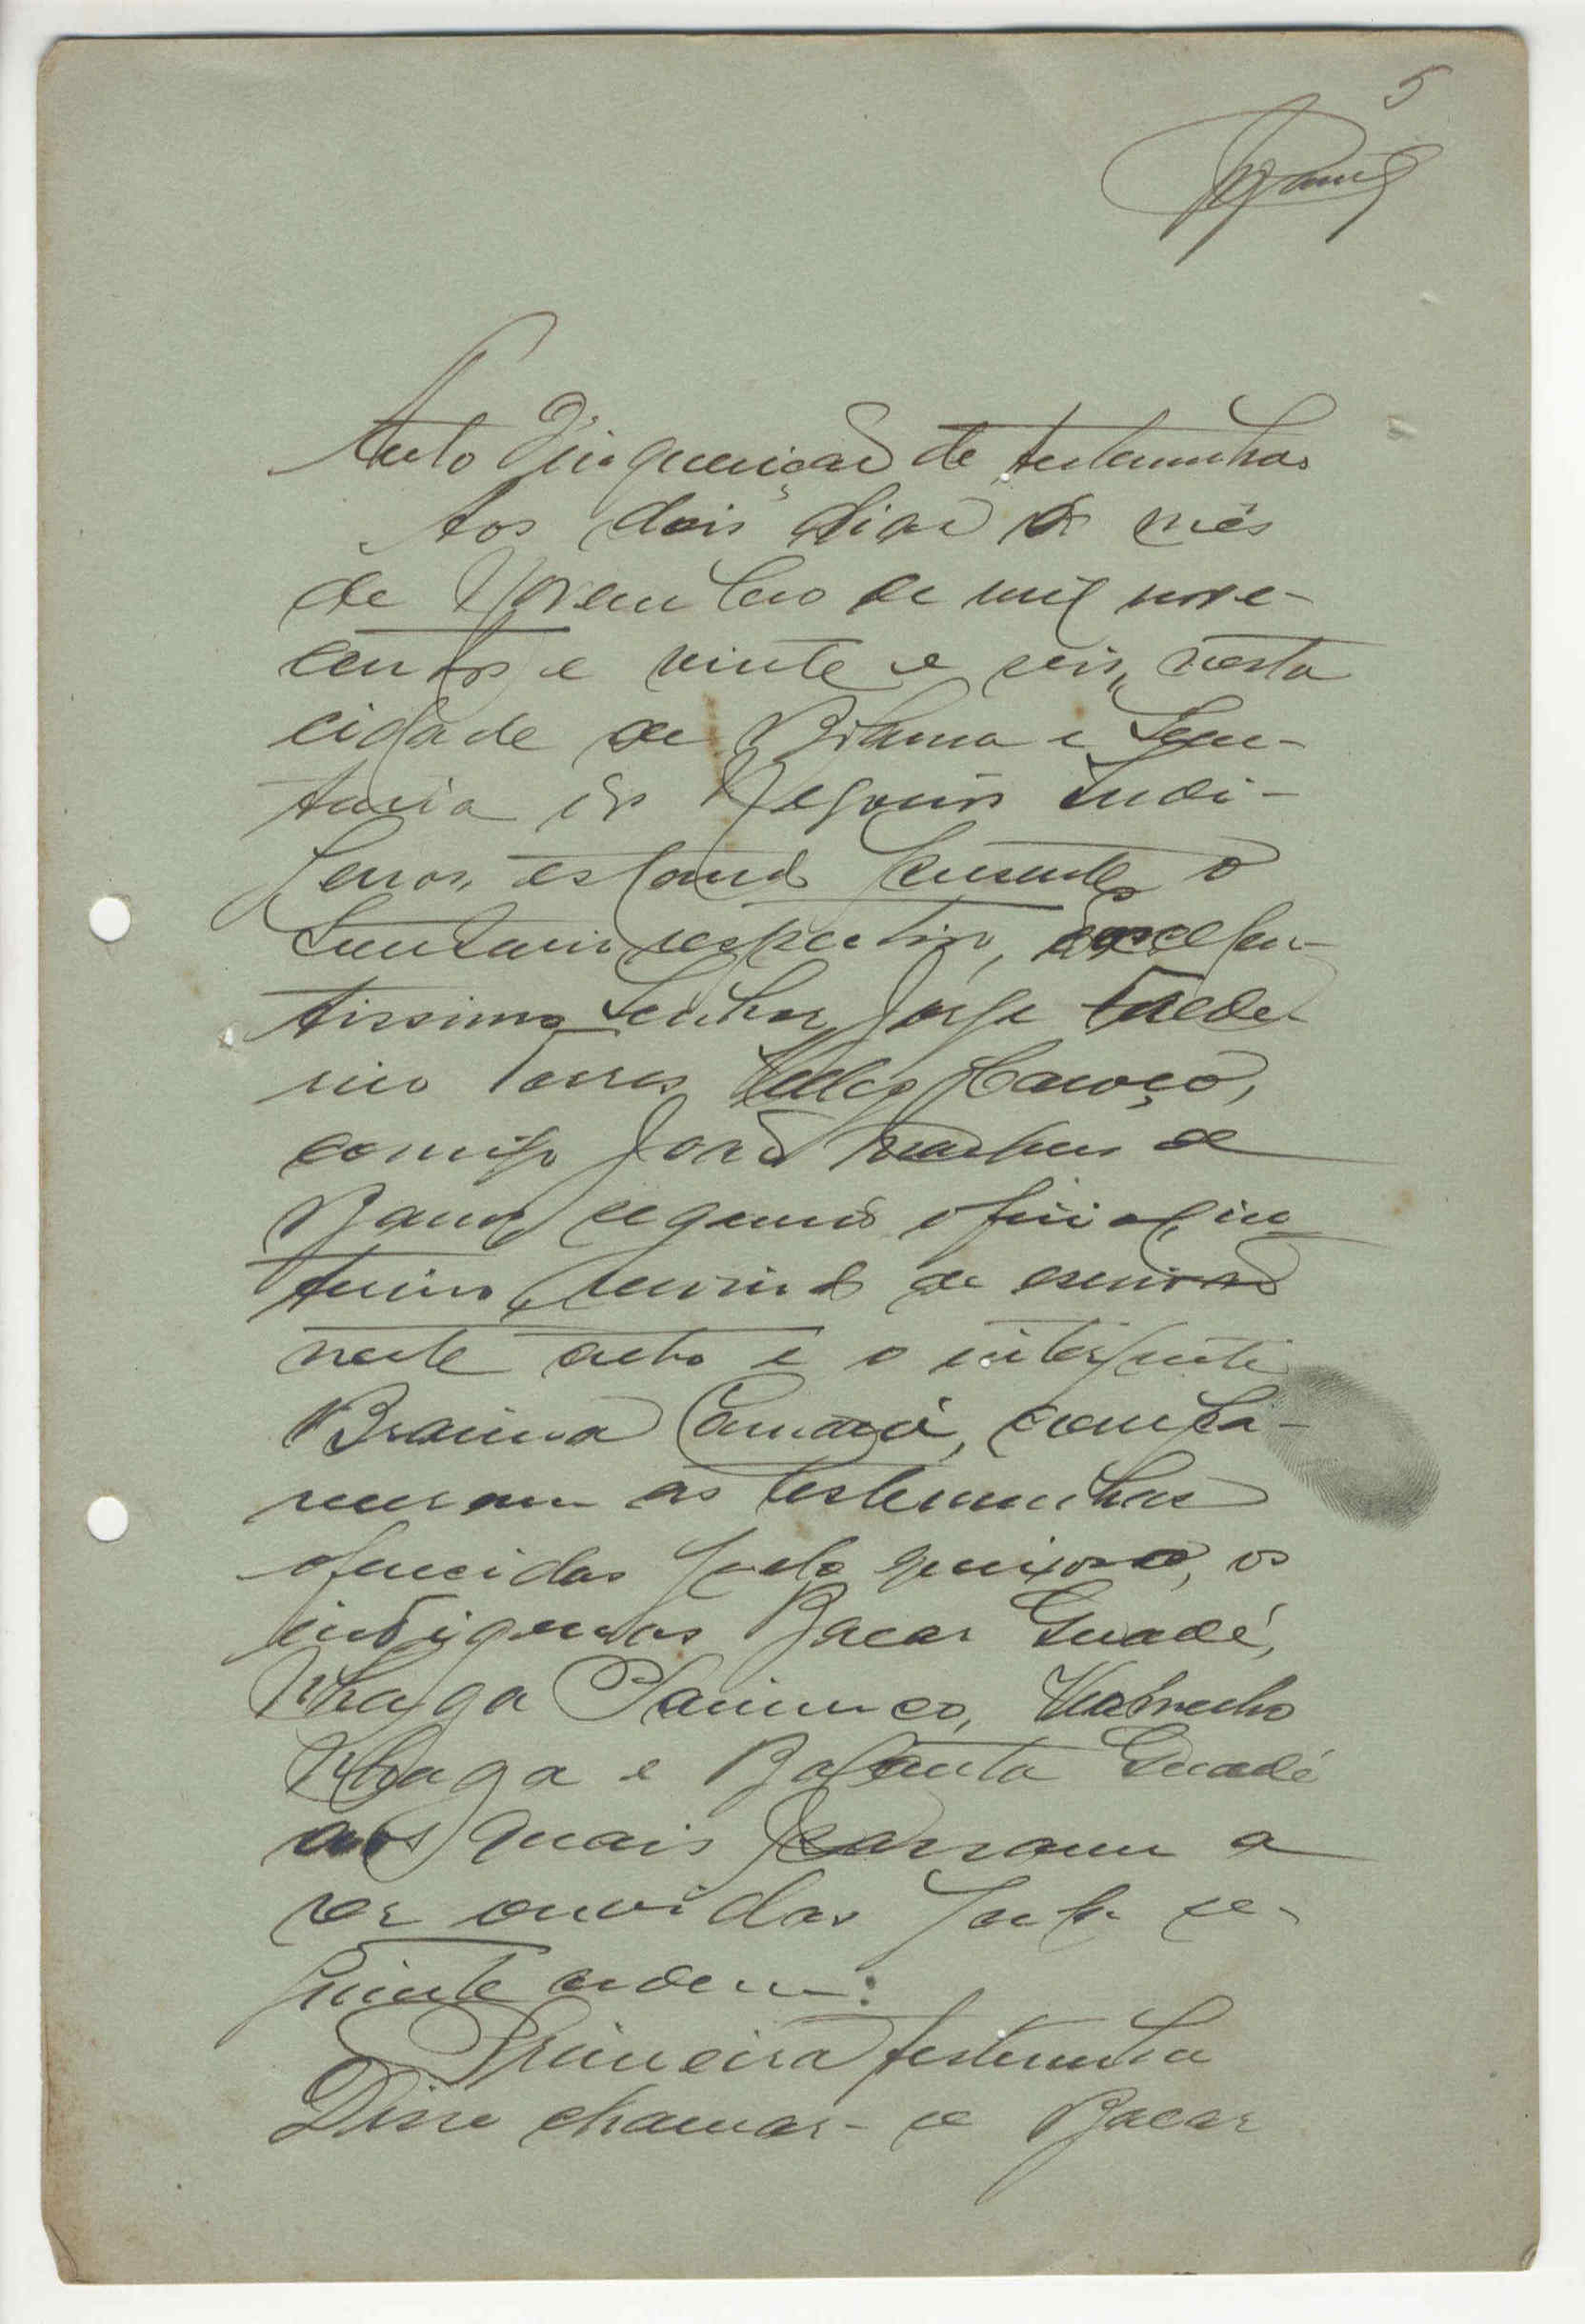 5
Auto d'inquirição de testemunhas
Aos dois dias do mês
de Novembro de mil nove-
centos e vinte e seis, nesta
cidade de Bolama e Secre-
taria dos Negocios Indi-
genas, estando presente o
Secretario respectivo, Excelen-
tissimo Senhor Jorge Frede-
rico Torres Velez Caroço,
comigo João de
Barros segundo oficial, in-
terino, servindo de escrivão
neste auto e o interprete
Braima Camará, compa-
receram as testemunhas
oferecidas pelo queixoso, os
indigenas Bacar Guadé,
Nhaga e Balanta Guadé
aos quais passaram a
ser ouvidas pela se-
guinte ordem:
Primeira testemunha
Disse chamar-se Bacar